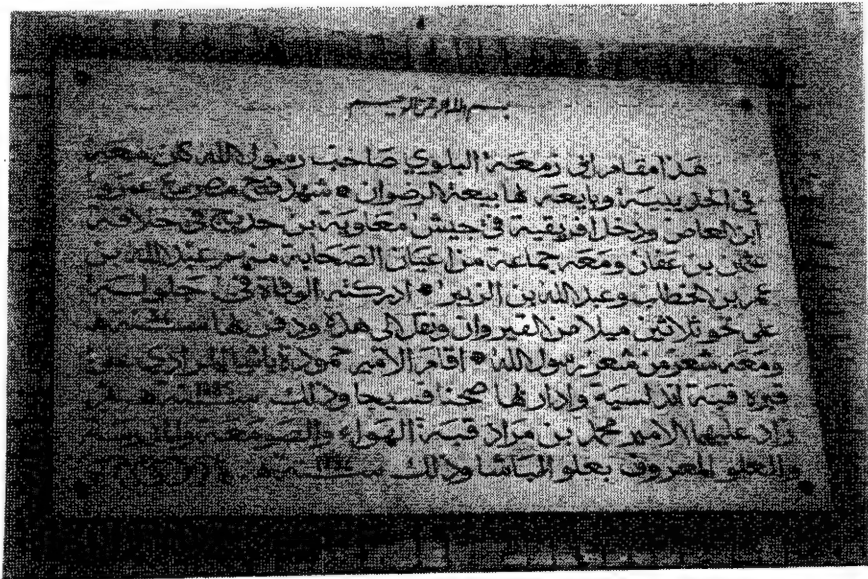 بسم الله الرحمن الرحيم
هذا مقام ابي زمعة البلوي صاحب رسول الله كان معه
في الحديبية وبايعه بها بيعة الرضوان • شهد فتح مصر مع عمرو
ابن العاص ودخل افريقية في جيش معاوية بن حديج في خلافة
عثمن بن عفان ومعه جماعة من اعيان الصحابة منهم عبد الله بن
عمر بن الخطاب وعبد الله بن الزبير • ادركته الوفاة في جلولة
على نحو ثلاثين ميلا من القيروان ونقل الى هذه ودفن بها سنة 34 هـ
ومعه شعر من شعر رسول الله • اقام الامير حمودة باشا المرادي على
قبره قبة اندلسية وادار بها صحنا فسيحا وذلك سنة 1085 هـ ثم
زاد عليها الامير محمد بن مراد قبة الهواء والصمعة والمدرسة
والعلو المعروف بعلو الباشا وذلك سنة هـ